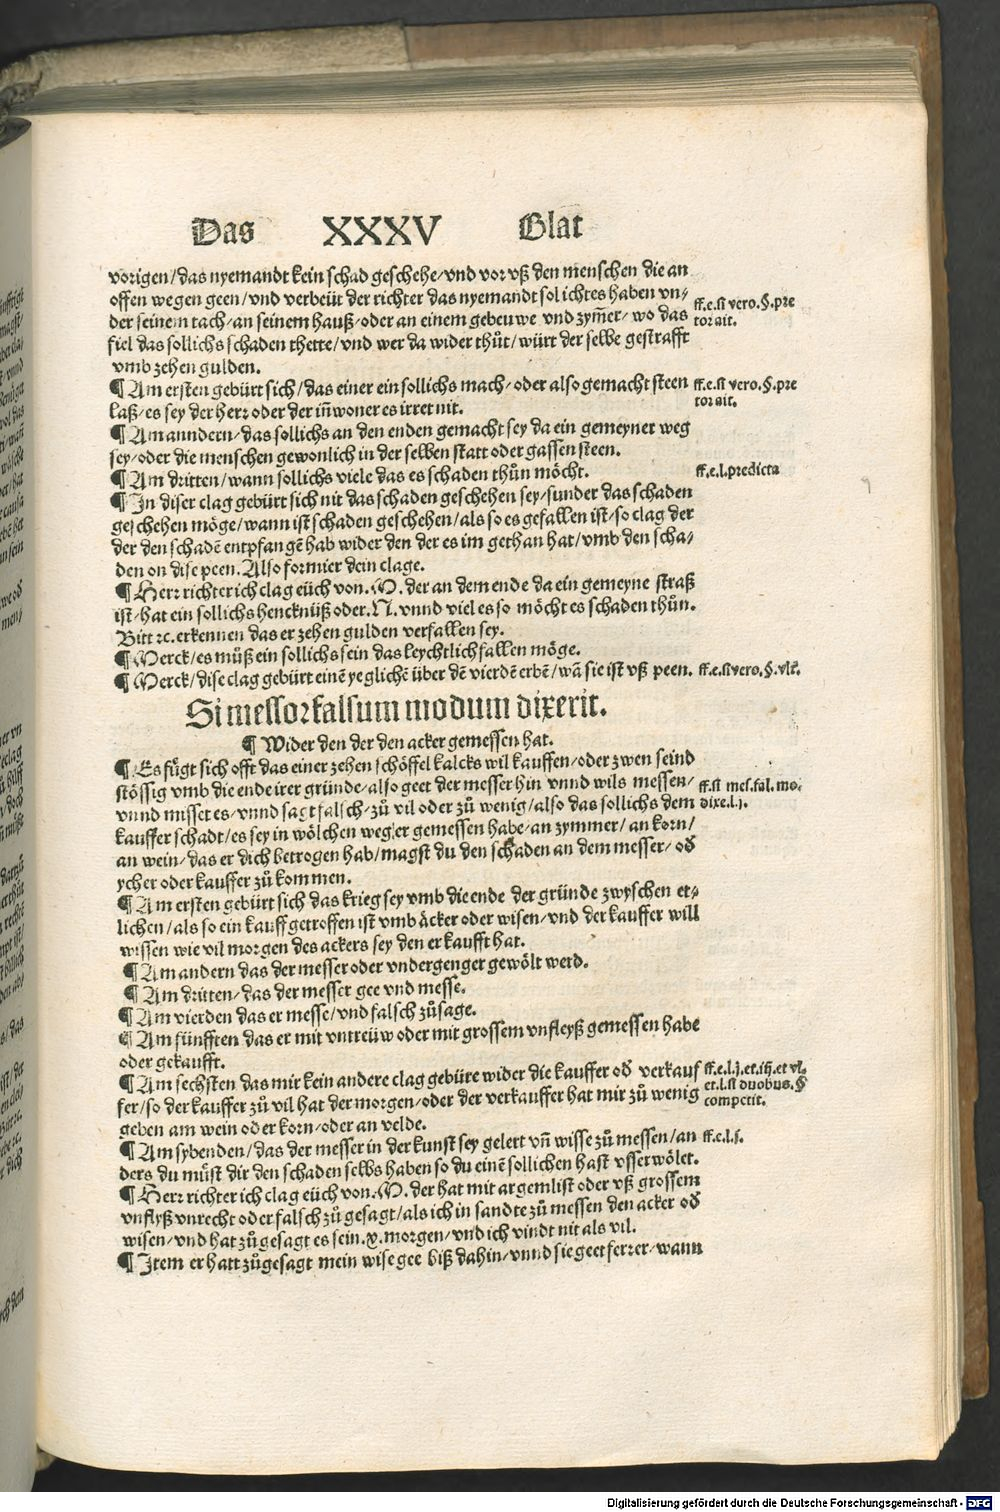 Das XXXV Blat
vorigen/das nyemandt kein schad geschehe/vnd vor vß den menschen die an
offen wegen geen/vnd verbeüt der richter das nyemandt sol ichtes haben vn/
der seinem tach/an seinem hauß/oder an einem gebeuwe vnd zym̄er/wo das
fiel das sollichs schaden thette/vnd wer da wider thůt/würt der selbe gestrafft
vmb zehen gulden.
ff.e.si vero.§.pre
tor ait.
¶ Am ersten gebürt sich/das einer ein sollichs mach/oder also gemacht steen
laß/es sey der herr oder der iñwoner es irret nit.
ff.e.si vero.§.pre
tor ait.
¶ Am anndern/das sollichs an den enden gemacht sey da ein gemeyner weg
sey/oder die menschen gewonlich in der selben statt oder gassen steen.
¶ Am dritten/wann sollichs viele das es schaden thůn möcht.
ff.e.l.predicta
¶ In diser clag gebürt sich nit das schaden geschehen sey/sunder das schaden
geschehen möge/wann ist schaden geschehen/als so es gefallen ist/so clag der
der den schadē entpfangē hab wider den der es im gethan hat/vmb den scha/
den on dise peen. Also formier dein clage.
¶ Herr richter ich clag eüch von.M. der an dem ende da ein gemeyne straß
ist/hat ein sollichs hencknüß oder.N. vnnd viel es so möcht es schaden thůn.
Bitt ꝛc. erkennen das er zehen gulden verfallen sey.
¶ Merck/es můß ein sollichs sein das leychtlich fallen möge.
¶ Merck/dise clag gebürt einē yeglichē über dē vierdē erbē/wañ sie ist vß peen.
ff.e.si vero.§.vlt̄.
Si messor falsum modum dixerit.
¶ Wider den der den acker gemessen hat.
¶ Es fügt sich offt das einer zehen schöffel kalcks wil kauffen/oder zwen seind
stössig vmb die ende irer gründe/also geet der messer hin vnnd wils messen/
vnnd misset es/vnnd sagt falsch/zů vil oder zů wenig/also das sollichs dem
kauffer schadt/es sey in wölchen weg er gemessen habe/an zymmer/an korn/
an wein/das er dich betrogen hab/magst du den schaden an dem messer/oď
ycher oder kauffer zů kommen.
ff.si mes.fal.mo.
dixe.l.j.
¶ Am ersten gebürt sich das krieg sey vmb die ende der gründe zwyschen et/
lichen/als so ein kauff getroffen ist vmb äcker oder wisen/vnd der kauffer will
wissen wie vil morgen des ackers sey den er kaufft hat.
¶ Am andern das der messer oder vndergenger gewölt werd.
¶ Am dritten/das der messer gee vnd messe.
¶ Am vierden das er messe/vnd falsch zůsage.
¶ Am fünfften das er mit vntreüw oder mit grossem vnfleyß gemessen habe
oder gekaufft.
¶ Am sechsten das mir kein andere clag gebüre wider die kauffer oď verkauf
fer/so der kauffer zů vil hat der morgen/oder der verkauffer hat mir zů wenig
geben am wein oder korn/oder an velde.
ff.e.l.j.et.iij.et vl.
et.l.si duobus.§
competit.
¶ Am sybenden/das der messer in der kunst sey gelert vñ wisse zů messen/an
ders du müst dir den schaden selbs haben so du einē sollichen hast vsserwölet.
ff.e.l.j.
¶ Herr richter ich clag eüch von.M. der hat mit argemlist oder vß grossem
vnflyß vnrecht oder falsch zů gesagt/als ich in sandte zů messen den acker oď
wisen/vnd hat zů gesagt es sein.x.morgen/vnd ich vindt nit als vil.
¶ Item er hatt zůgesagt mein wise gee biß dahin/vnnd sie geet ferrer/wann
Digitalisierung gefördert durch die Deutsche Forschungsgemeinschaft - DFG